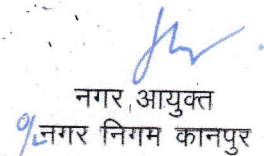 नगर आयुक्त
नगर निगम कानपुर